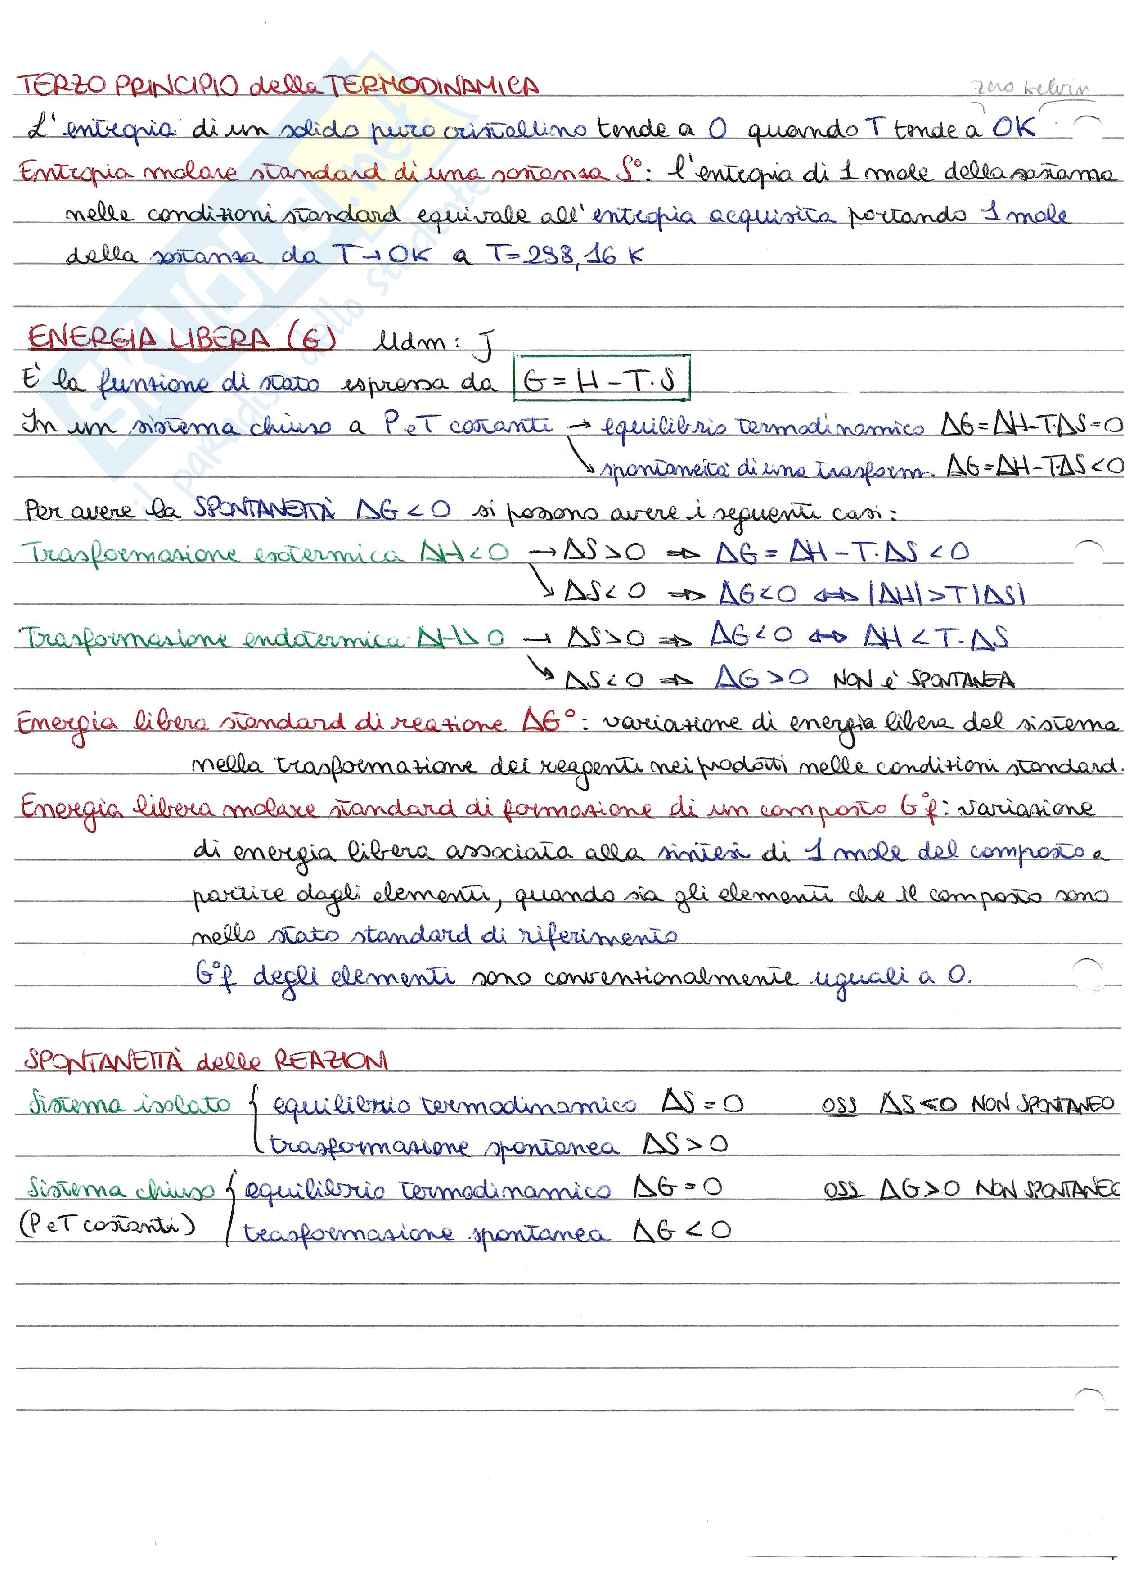 TERZO PRINCIPIO della TERMODINAMICA
zero kelvin
L'entropia di un solido puro cristallino tende a 0 quando T tende a 0K
Entropia molare standard di una sostanza S°: l'entropia di 1 mole della sostanza
nelle condizioni standard equivale all'entropia acquisita portando 1 mole
della sostanza da T→0K a T=298,16 K
ENERGIA LIBERA (G) Udm: J
E' la funzione di stato espressa da G = H - T·S
In un sistema chiuso a P e T costanti → equilibrio termodinamico ΔG=ΔH-T·ΔS=0
↘ spontaneità di una trasform. ΔG=ΔH-T·ΔS<0
Per avere la SPONTANEITÀ ΔG<0 si possono avere i seguenti casi:
Trasformazione esotermica ΔH<0 → ΔS>0 ⇒ ΔG = ΔH - T·ΔS < 0
↘ ΔS<0 ⇒ ΔG<0 ⇔ |ΔH|>T|ΔS|
Trasformazione endotermica ΔH>0 → ΔS>0 ⇒ ΔG<0 ⇔ ΔH<T·ΔS
↘ ΔS<0 ⇒ ΔG>0 NON è SPONTANEA
Energia libera standard di reazione ΔG°: variazione di energia libera del sistema
nella trasformazione dei reagenti nei prodotti nelle condizioni standard.
Energia libera molare standard di formazione di un composto G°f: variazione
di energia libera associata alla sintesi di 1 mole del composto a
partire dagli elementi, quando sia gli elementi che il composto sono
nello stato standard di riferimento
G°f degli elementi sono convenzionalmente uguali a 0.
SPONTANEITÀ delle REAZIONI
Sistema isolato { equilibrio termodinamico ΔS=0 OSS ΔS<0 NON SPONTANEO
trasformazione spontanea ΔS>0
Sistema chiuso { equilibrio termodinamico ΔG=0 OSS ΔG>0 NON SPONTANEO
(P e T costanti) trasformazione spontanea ΔG<0